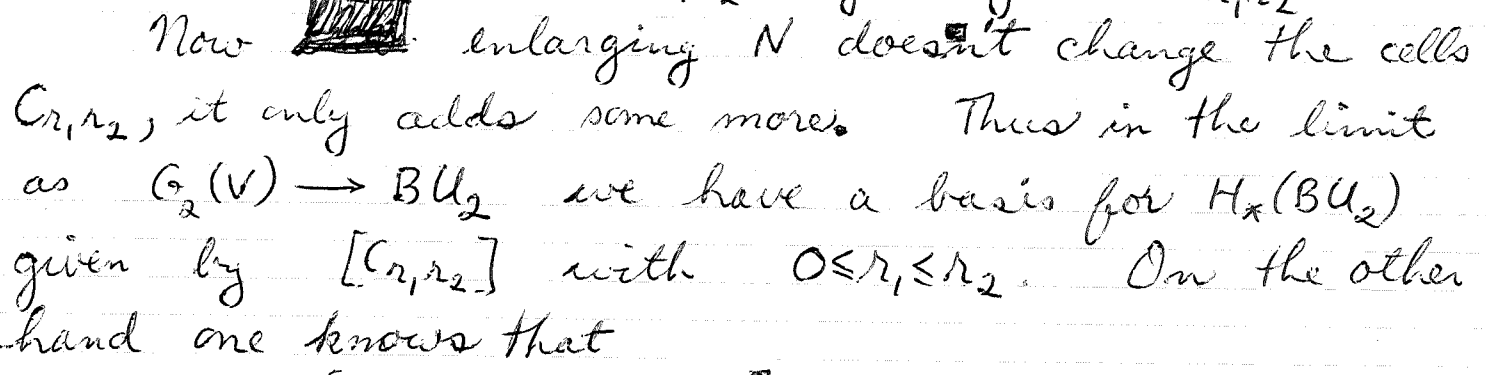 Now enlarging N doesn't change the cells
C_{r_1 r_2}, it only adds some more. Thus in the limit
as G_2(V) ⟶ BU_2 we have a basis for H_*(BU_2)
given by [C_{r_1 r_2}] with 0≤r_1≤r_2. On the other
hand one knows that